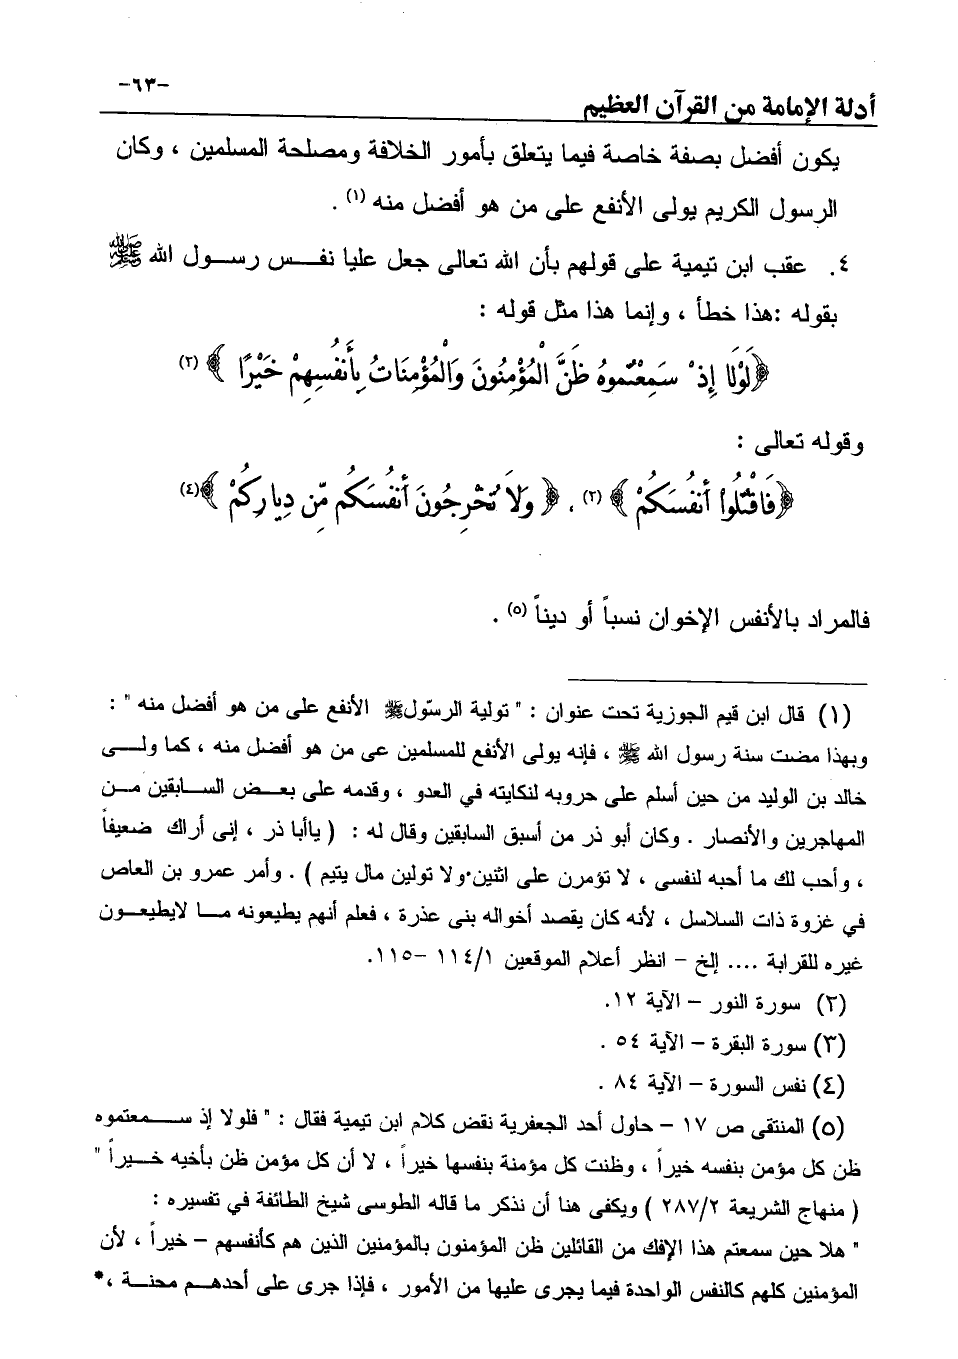 أدلة الإمامة من القرآن العظيم -٦٣-
يكون أفضل بصفة خاصة فيما يتعلق بأمور الخلافة ومصلحة المسلمين ، وكان
الرسول الكريم يولى الأنفع على من هو أفضل منه (١) .
٤. عقب ابن تيمية على قولهم بأن الله تعالى جعل عليا نفس رسول الله ﷺ
بقوله :هذا خطأ ، وإنما هذا مثل قوله :
﴿لَوْلَا إِذْ سَمِعْتُمُوهُ ظَنَّ الْمُؤْمِنُونَ وَالْمُؤْمِنَاتُ بِأَنفُسِهِمْ خَيْرًا ﴾ (٢)
وقوله تعالى :
﴿فَاقْتُلُوا أَنفُسَكُمْ ﴾ (٣) ، ﴿ وَلَا تُخْرِجُونَ أَنفُسَكُم مِّن دِيَارِكُمْ ﴾ (٤)
فالمراد بالأنفس الإخوان نسباً أو ديناً (٥) .
(١) قال ابن قيم الجوزية تحت عنوان : " تولية الرسول ﷺ الأنفع على من هو أفضل منه " :
وبهذا مضت سنة رسول الله ﷺ ، فإنه يولى الأنفع للمسلمين عى من هو أفضل منه ، كما ولى
خالد بن الوليد من حين أسلم على حروبه لنكايته في العدو ، وقدمه على بعض السابقين من
المهاجرين والأنصار . وكان أبو ذر من أسبق السابقين وقال له : ( ياأبا ذر ، إنى أراك ضعيفاً
، وأحب لك ما أحبه لنفسى ، لا تؤمرن على اثنين ولا تولين مال يتيم ) . وأمر عمرو بن العاص
في غزوة ذات السلاسل ، لأنه كان يقصد أخواله بنى عذرة ، فعلم أنهم يطيعونه ما لايطيعون
غيره للقرابة .... إلخ - انظر أعلام الموقعين ١/ ١١٤ -١١٥.
(٢) سورة النور - الآية ١٢.
(٣) سورة البقرة - الآية ٥٤ .
(٤) نفس السورة - الآية ٨٤ .
(٥) المنتقى ص ١٧ - حاول أحد الجعفرية نقض كلام ابن تيمية فقال : " فلولا إذ سمعتموه
ظن كل مؤمن بنفسه خيراً ، وظنت كل مؤمنة بنفسها خيراً ، لا أن كل مؤمن ظن بأخيه خيراً "
( منهاج الشريعة ٢/ ٢٨٧ ) ويكفى هنا أن نذكر ما قاله الطوسى شيخ الطائفة في تفسيره :
" هلا حين سمعتم هذا الإفك من القائلين ظن المؤمنون بالمؤمنين الذين هم كأنفسهم - خيراً ، لأن
المؤمنين كلهم كالنفس الواحدة فيما يجرى عليها من الأمور ، فإذا جرى على أحدهم محنة ،*